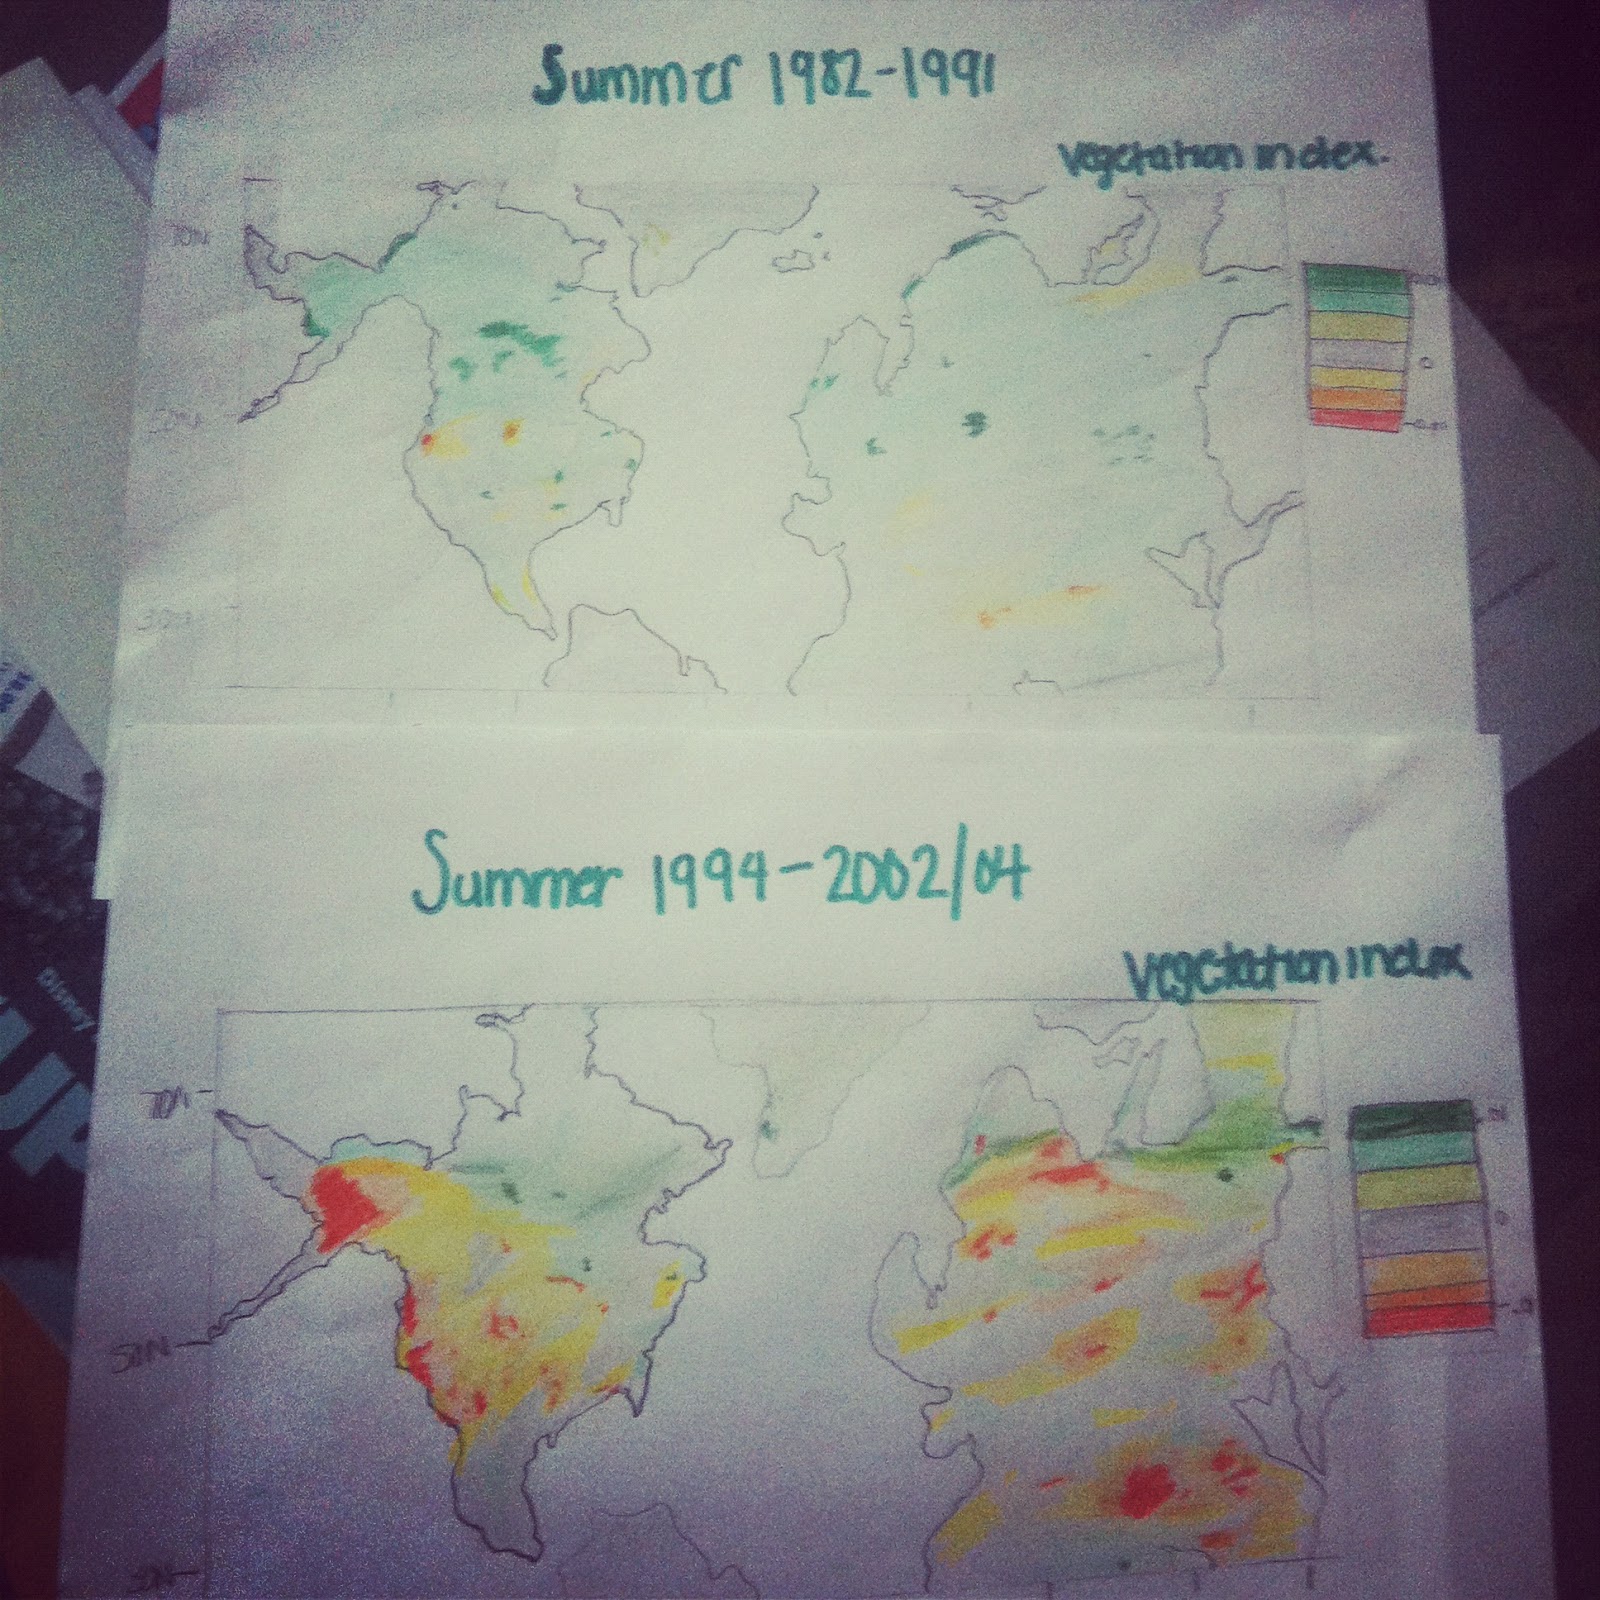 Summer 1982-1991
Vegetation index.
70N
50N
0
Summer 1994-2002/04
Vegetation index
70N
50N
0
30N
Disney